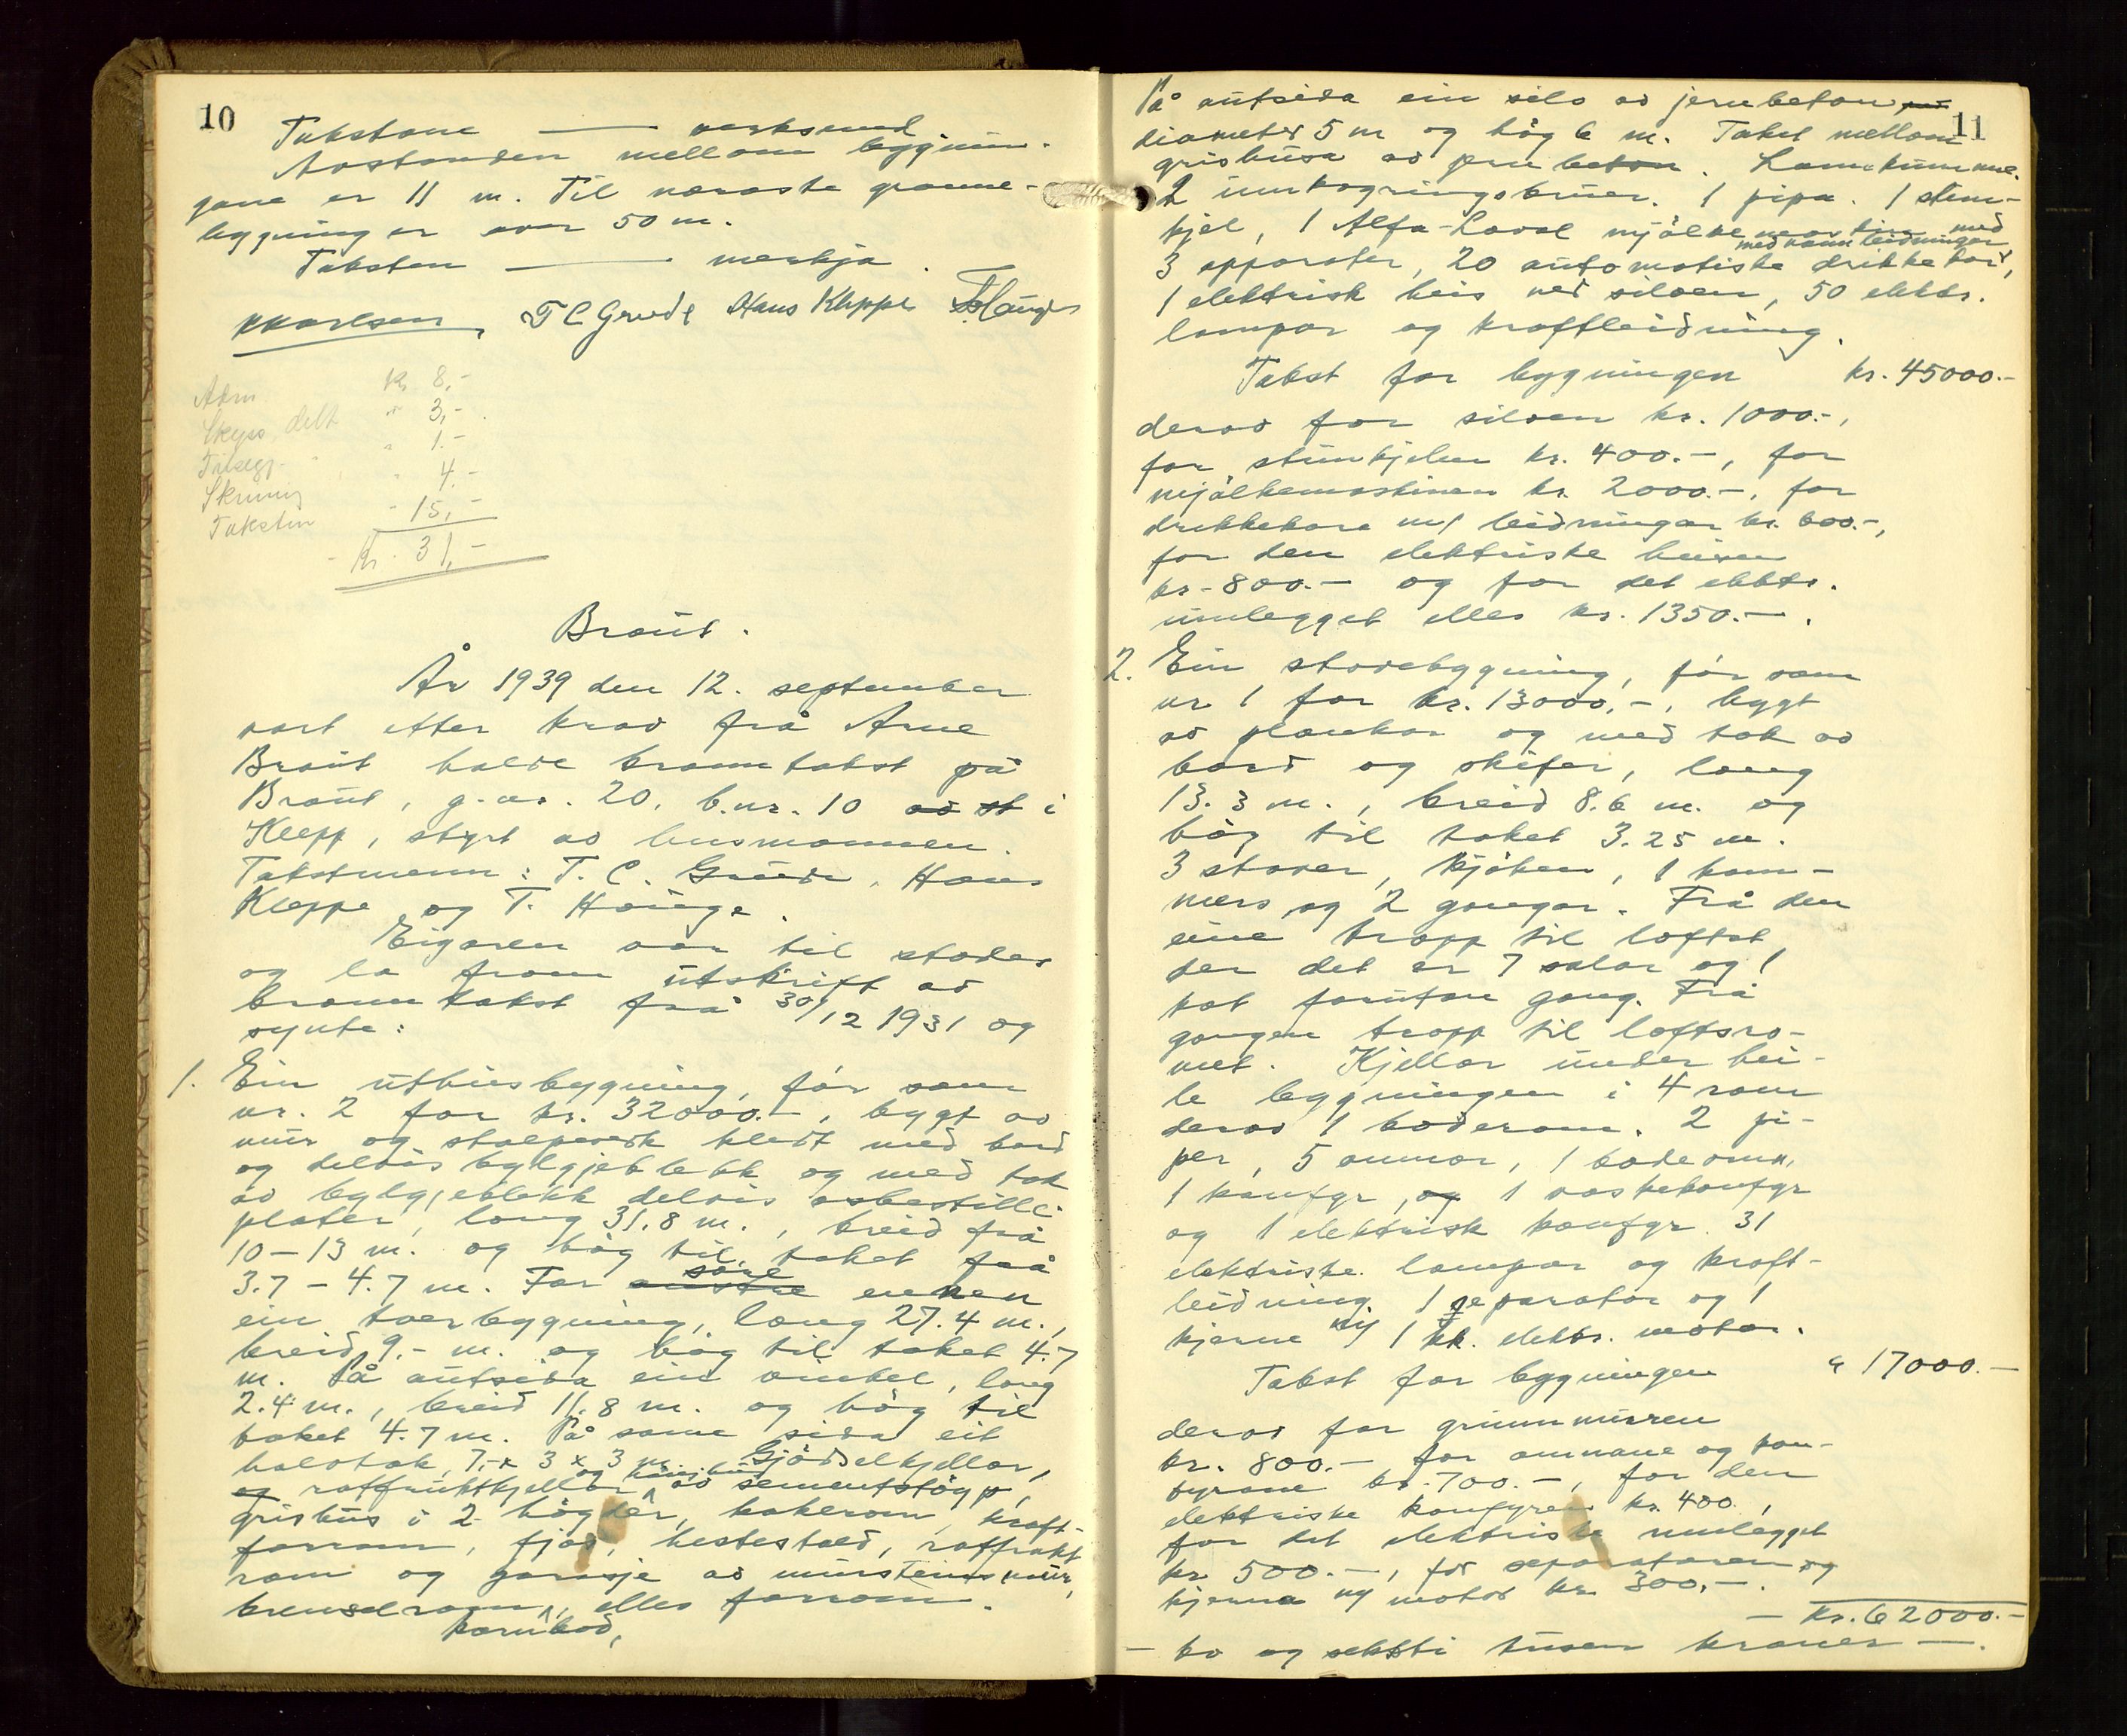 10
Takstane — verksemd
Avstanden mellom bygnin-
gane er 11 m. Til næraste granne-
bygning er over 50 m.
Taksten — merkja.
K Karlsen, T C Grude Hans Kleppe T Hauge
Akm kr 8,-
Skyss delt " 3,-
Tillegg " 1.-
Skriving " 4.-
Taksten - 15,-
- Kr. 31,-
Braut.
År 1939 den 12. september
vart etter krav frå Arne
Braut halde branntakst på
Braut, g.nr. 20, b.nr. 10 av st i
Klepp, styrt av lensmannen.
Takstmenn: T. C. Grude, Hans
Kleppe og T. Hauge.
Eigaren var til stades
og la fram utskrift av
branntakst frå 30/12 1931 og
synte:
1. Ein uthusbygning, før som
nr. 2 for kr. 32000.-, bygt av
mur og stolpeverk kledt med bord
og delvis bylgjeblekk og med tak
av bylgjeblekk delvis asbestille-
plater, lang 31.8 m., breid frå
10-13 m. og høg til taket frå
3.7 - 4.7 m. For austre søre enden
ein tverbygning, lang 27.4 m.,
breid 9.- m. og høg til taket 4.7
m. På autsida ein vinkel, lang
2.4 m., breid 11.8 m. og høg til
taket 4.7 m. På same sida eit
halvtak, 7.- x 3 x 3 m. Gjødselkjellar,
og rotfruktkjellar og hønsehus av sementstøyp,
grishus i 2 høgder, kokerom, kraft-
forrom, fjøs, hestestald, rotfrukt
rom og garasje av mursteinsmur,
brenselrom, kornbod, elles forrom.
11
På autsida ein silo av jernbeton, med
diameter 5 m og høg 6 m. Taket mellom
grishusa av jernbeton. Landkumme.
2 innkøyringsbruer. 1 pipa. 1 stim-
kjel, 1 Alfa-Laval mjølkemaskin med
3 apparater, 20 automatiske drikkekar med vannleidningar,
1 elektrisk heis ved siloen, 50 elektr.
lampor og kraftleidning.
Takst for bygningen kr. 45000.-
derav for siloen kr. 1000.-,
for stimkjelen kr. 400.-, for
mjølkemaskinen kr. 2000.-, for
drikkekara m/ leidningar kr. 600.-,
for den elektriske heisen
kr. 800.- og for det elektr.
innlegget elles kr. 1350.-.
2. Ein stovebygning, før som
nr 1 for kr. 13000,-, bygt
av plankar og med tak av
bord og skifer, lang
13.3 m., breid 8.6 m. og
høg til taket 3.25 m.
3 stover, kjøken, 1 kam-
mers og 2 gangar. Frå den
eine trapp til loftet,
der det er 7 salar og 1
kot forutan gang. Frå
gangen trapp til loftsro-
met. Kjellar under hei-
le bygningen i 4 rom
derav 1 baderom. 2 pi-
per, 5 omnar, 1 badeomn,
1 komfyr, og 1 vaskekomfyr
og 1 elektrisk komfyr. 31
elektriske lampor og kraft-
leidning. 1 separator og 1
kjerne m/ 1 hk. elektr. motor.
Takst for bygningen " 17000.-
derav for grunnmuren
kr. 800.- for omnane og kom-
fyrane kr. 700.-, for den
elektriske komfyren kr. 400.,
for det elektriske innlegget
kr. 500.-, for separatoren og
kjerna m/ motor kr. 300,-.
- Kr. 62000.-
- to og seksti tusen kroner -.